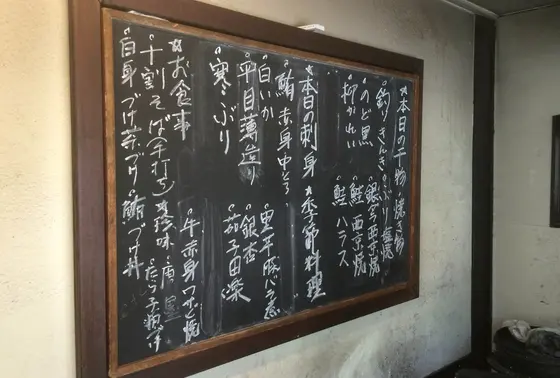 ★本日の干物・焼き物
・釣りきんき
・ぶり塩焼
・のど黒
西京焼
・柳かれい
・鮭西京焼
・鮭ハラス
★本日の刺身
★季節料理
・鮪赤身中とろ
豚バラ煮
・白いか
・銀杏
・平目薄造り
・茄子田楽
・寒ぶり
★お食事
・牛赤身わさび焼
・十割そば(手打ち)
★珍味
・唐墨
・白身づけ茶づけ
・鮪づけ丼
・たら子粕づけ